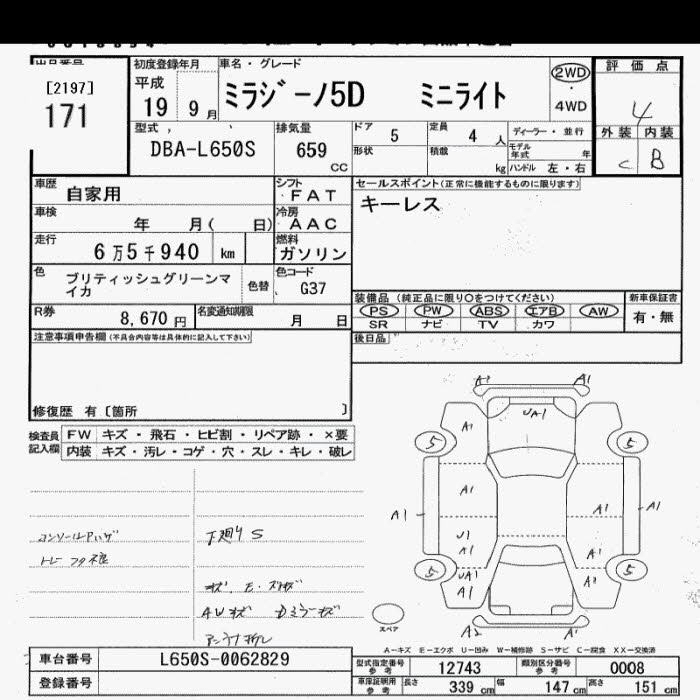 出品番号
[2197]
171
初度登録年月
平成
19 9 月
車名・グレード
ミラジーノ5D ミニライト
2WD
・
4WD
評価点
4
外装 内装
C B
型式
DBA-L650S
排気量
659
CC
ドア 5
定員 4 人
形状
積載 kg
ディーラー・並行
モデル年式 年
ハンドル 左・右
車歴
自家用
シフト
FAT
車検
年 月( 日)
冷房
AAC
走行
6万5千940 km
燃料
ガソリン
色
ブリティッシュグリーンマイカ
色替
色コード
G37
R券
8,670 円
名変通知期限
月 日
セールスポイント(正常に機能するものに限ります)
キーレス
装備品 (純正品に限り〇をつけてください)
PS PW ABS エアB AW
SR ナビ TV カワ
新車保証書
有・無
後日品
注意事項申告欄(不具合内容等は具体的に記入して下さい)
修復歴 有〔箇所 〕
検査員
記入欄
FW キズ・飛石・ヒビ割・リペア跡・×要
内装 キズ・汚レ・コゲ・穴・スレ・キレ・破レ
下廻りS
A1 A1
UA1
A1
5 5
A1 A1
A1 A1 A1
U1
A1 A1
5 5
UA1
A1 A2
A2 A1
スペア
A-キズ E-エクボ U-凹み W-補修跡 S-サビ C-腐食 XX-交換済
車台番号 L650S-0062829
登録番号
型式指定番号
参考
12743
類別区分番号
参考
0008
車庫証明用
参考
長さ 339 cm 幅 147 cm 高さ 151 cm